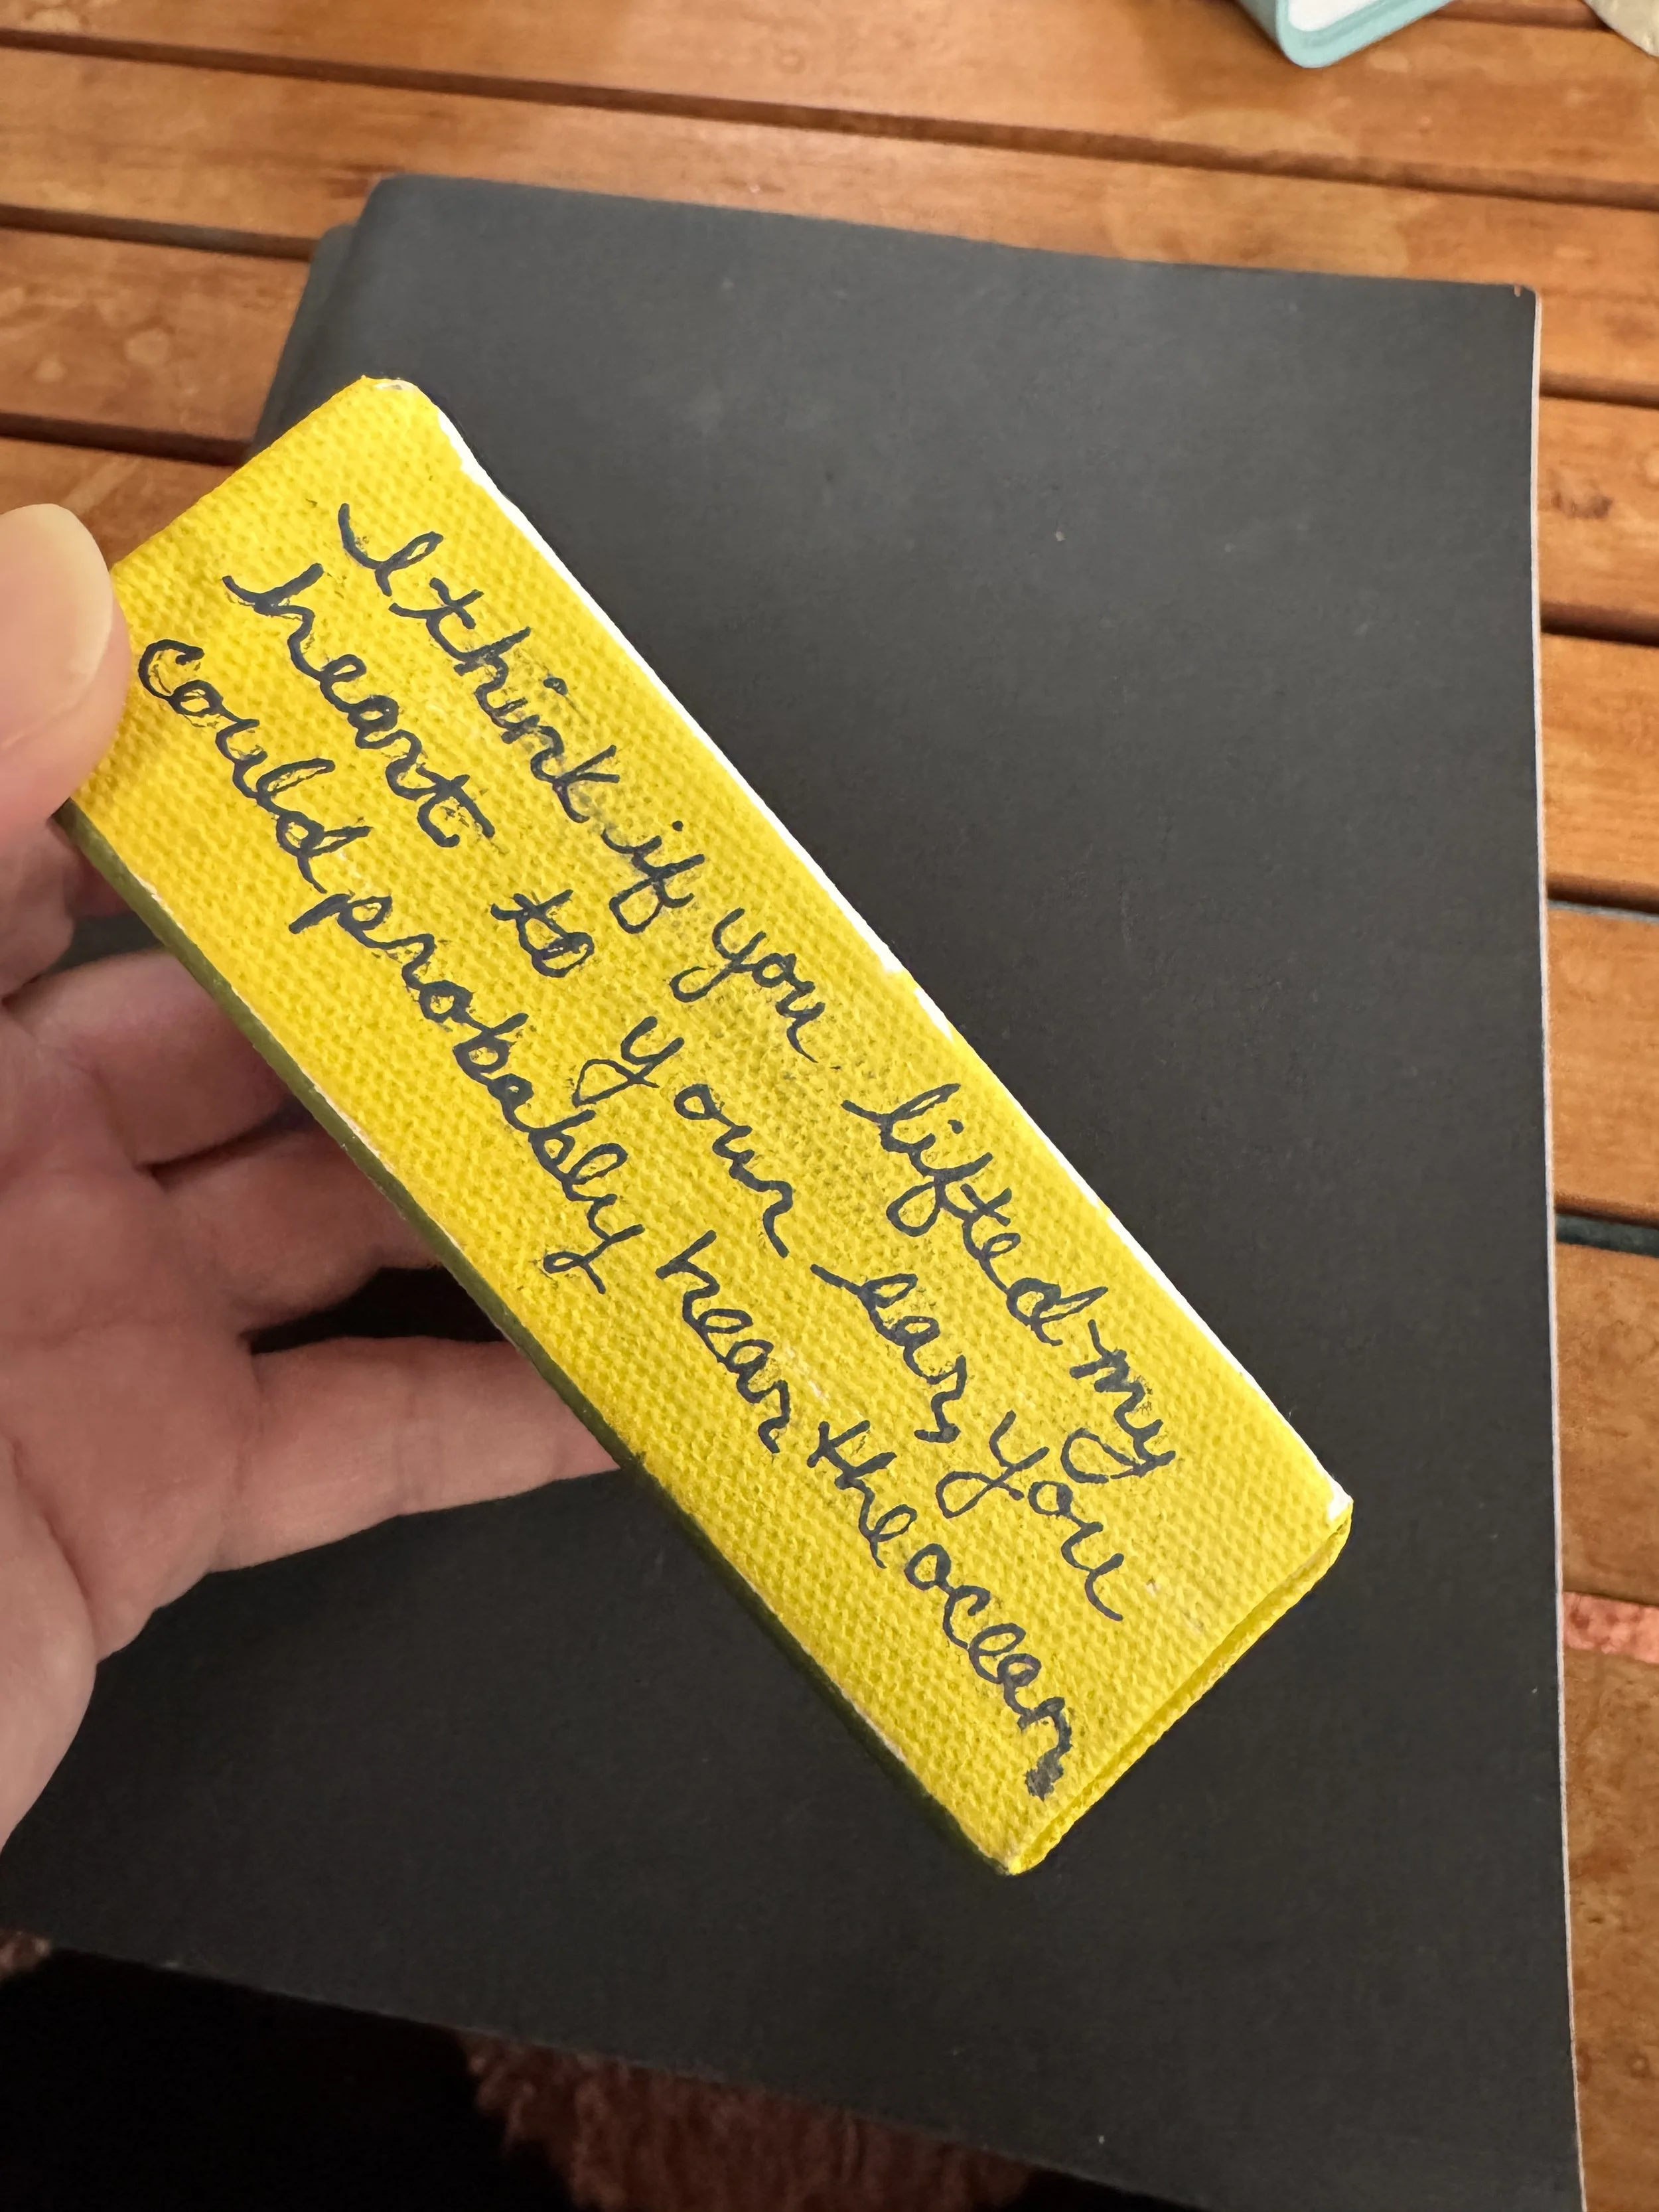 I think if you lifted my
heart to your ear, you
could probably hear the ocean